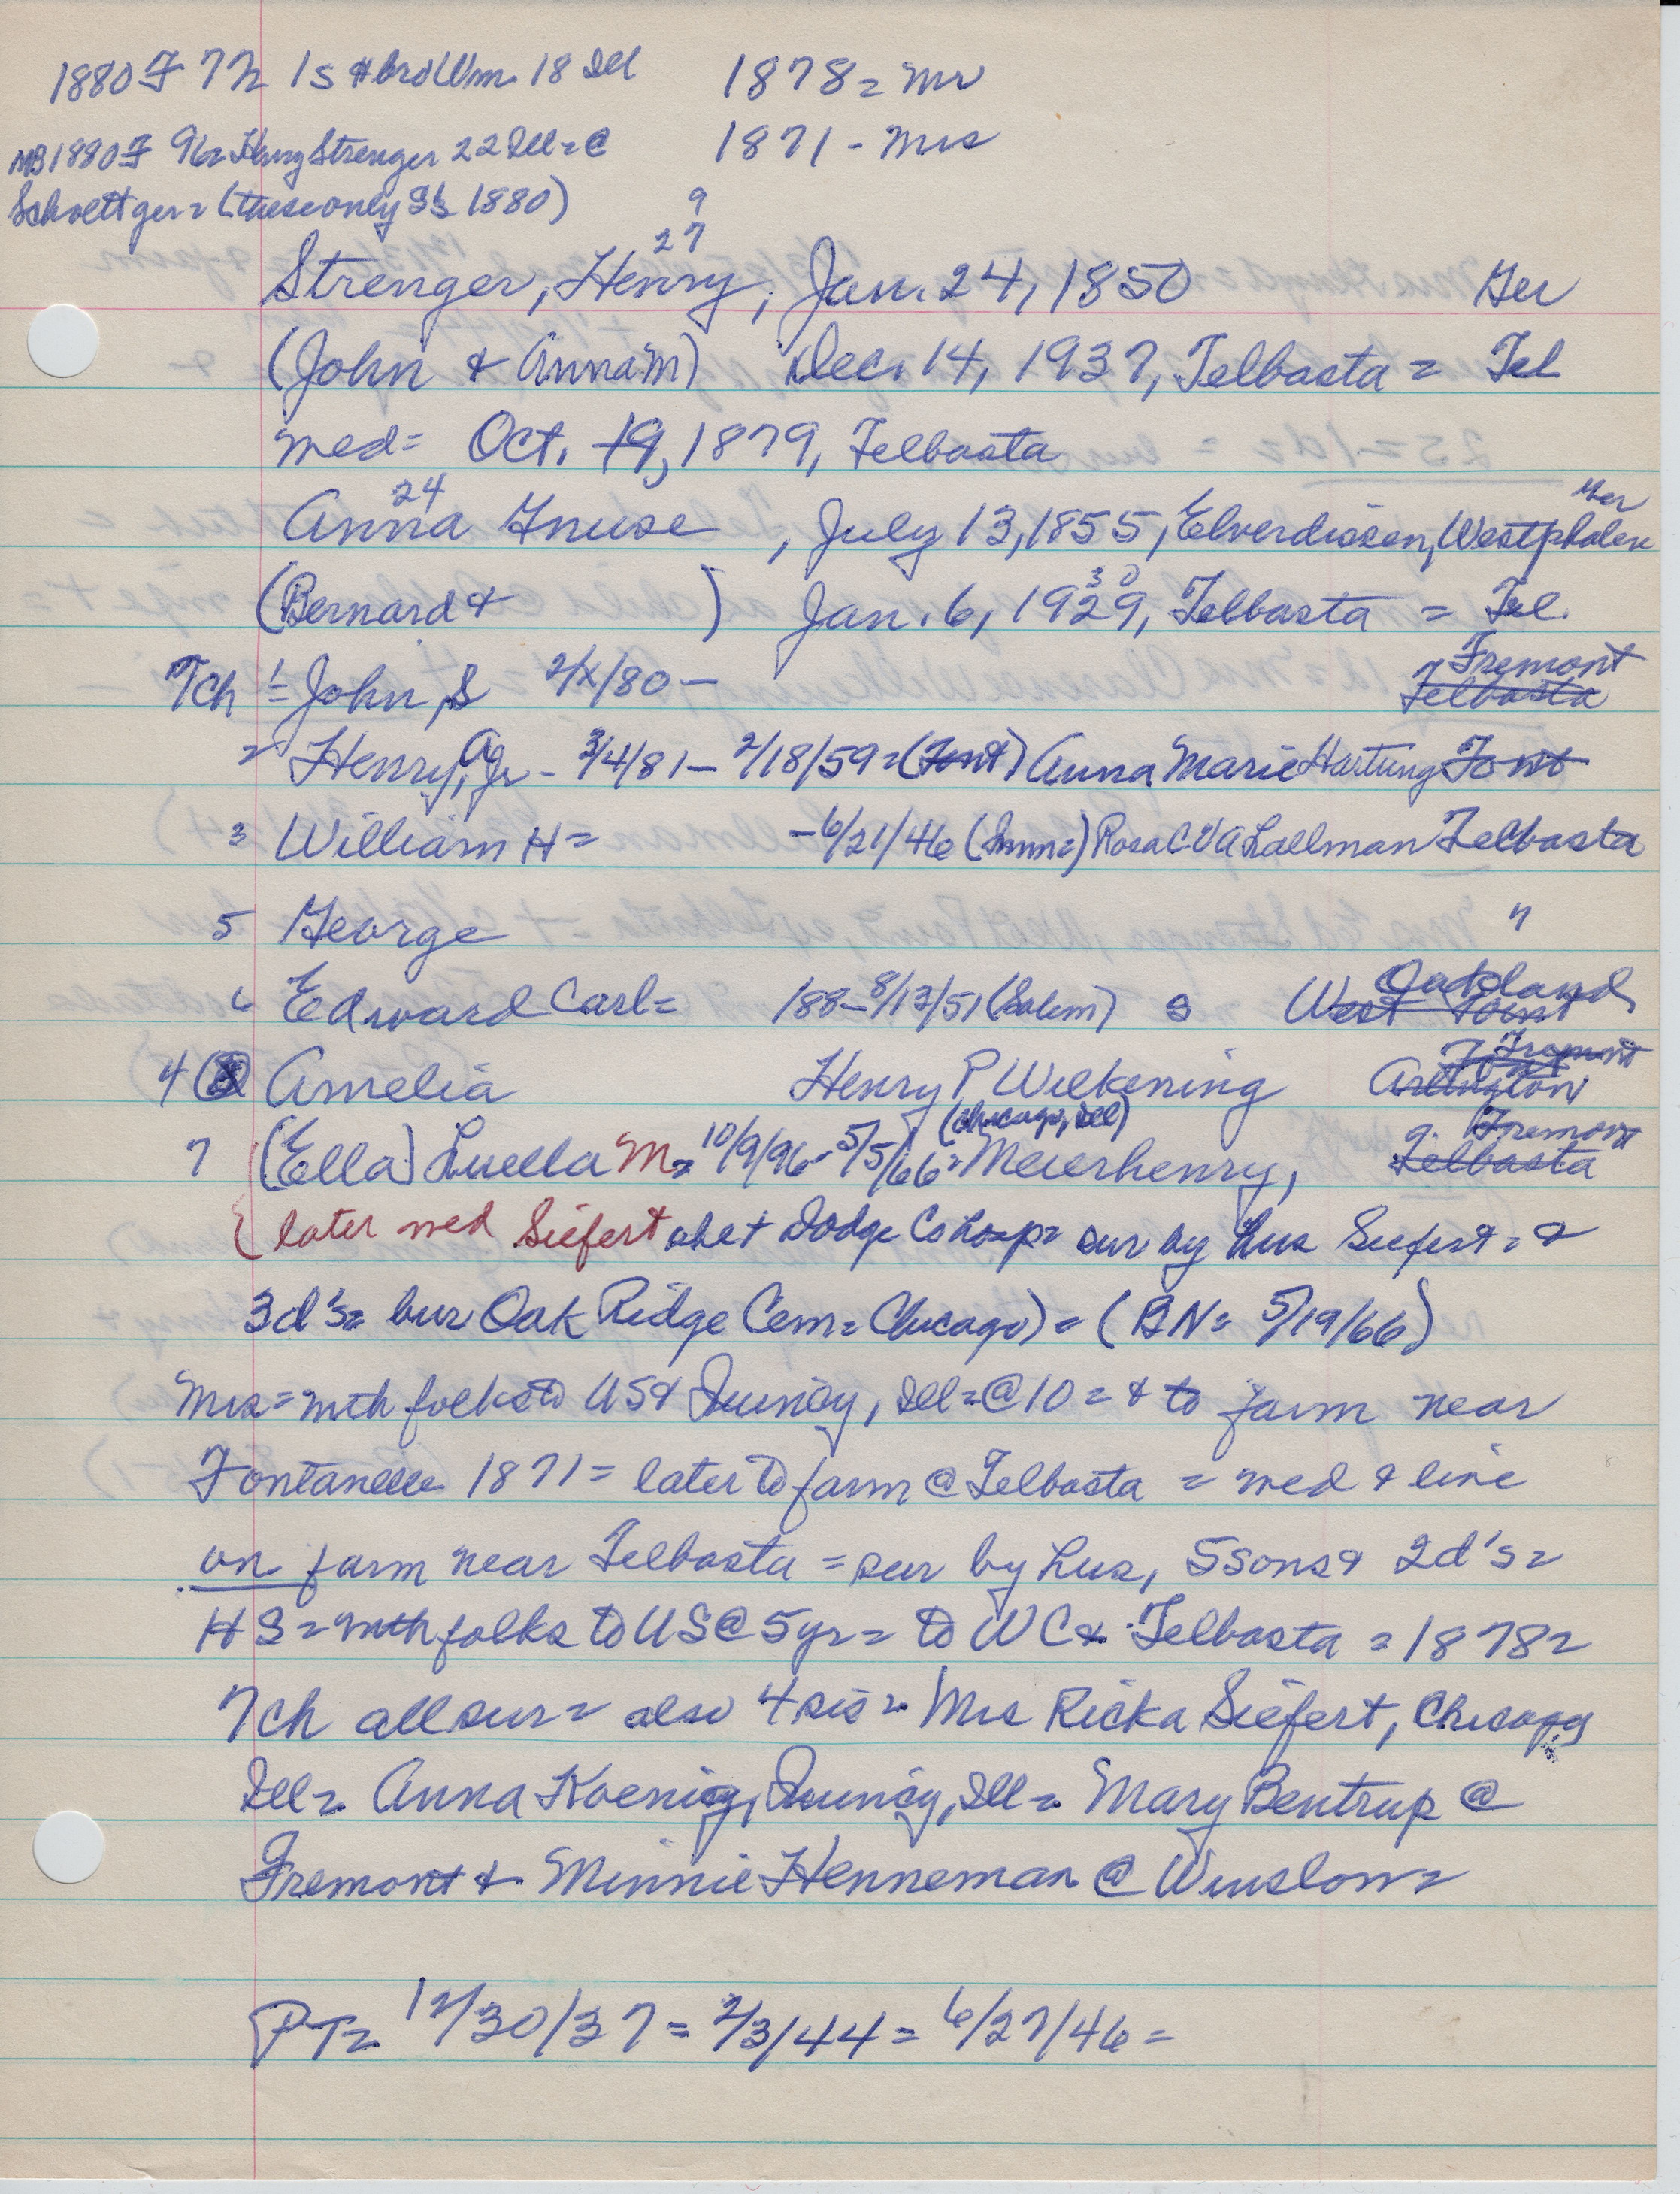 1880 F 72 1s & bro Wm 18 Ill 1878 = Mr
MB 1880 F 96 = Henry Strenger 22 Ill = @ 1871 - Mrs
Schoettger = (these only S's 1880) 9
27
Strenger, Henry, Jan. 24, 1850 Ger
(John & Anna M) Dec. 14, 1937, Telbasta = Tel
med = Oct. 19, 1879, Telbasta
24 Ger
Anna Gnuse , July 13, 1855, Elverdissen, Westphalen
30
(Bernard & ) Jan. 6, 1929, Telbasta = Tel.
Fremont
7ch 1= John, S 2/X/80 - Telbasta
2 Henry, Jr - 3/4/81 - 2/18/59 = (Font) Anna Marie Hartung Font
3 William H = - 6/21/46 Rosa C Lallman Telbasta
5 George "
Oakland
6 Edward Carl = 188 - 8/13/51 (Salem) S West Point
Fremont
4 (8) Amelia Henry P Wilkening Arlington
(Chicago, Ill) Fremont
7 (Ella) Luella M = 10/9/96 - 5/5/66 = Meierhenry, Telbasta
{ later med Siefert she + Dodge Co Hosp = sur by hus Siefert = &
3 d's = bur Oak Ridge Cem = Chicago) = (BN = 5/19/66)
Mrs = mth folks to US & Quincy, Ill = @ 10 = & to farm near
Fontanelle 1871 = later to farm @ Telbasta = med & live
on farm near Telbasta = sur by hus, 5 sons & 2 d's =
HS = mth folks to US @ 5 yr = to WC & Telbasta = 1878 =
7ch all sur = also 4 sis = Mrs Ricka Siefert, Chicago
Ill = Anna Koenig, Quincy, Ill = Mary Bentrup @
Fremont & Minnie Henneman @ Winslow =
PT = 12/30/37 = 2/3/44 = 6/27/46 =